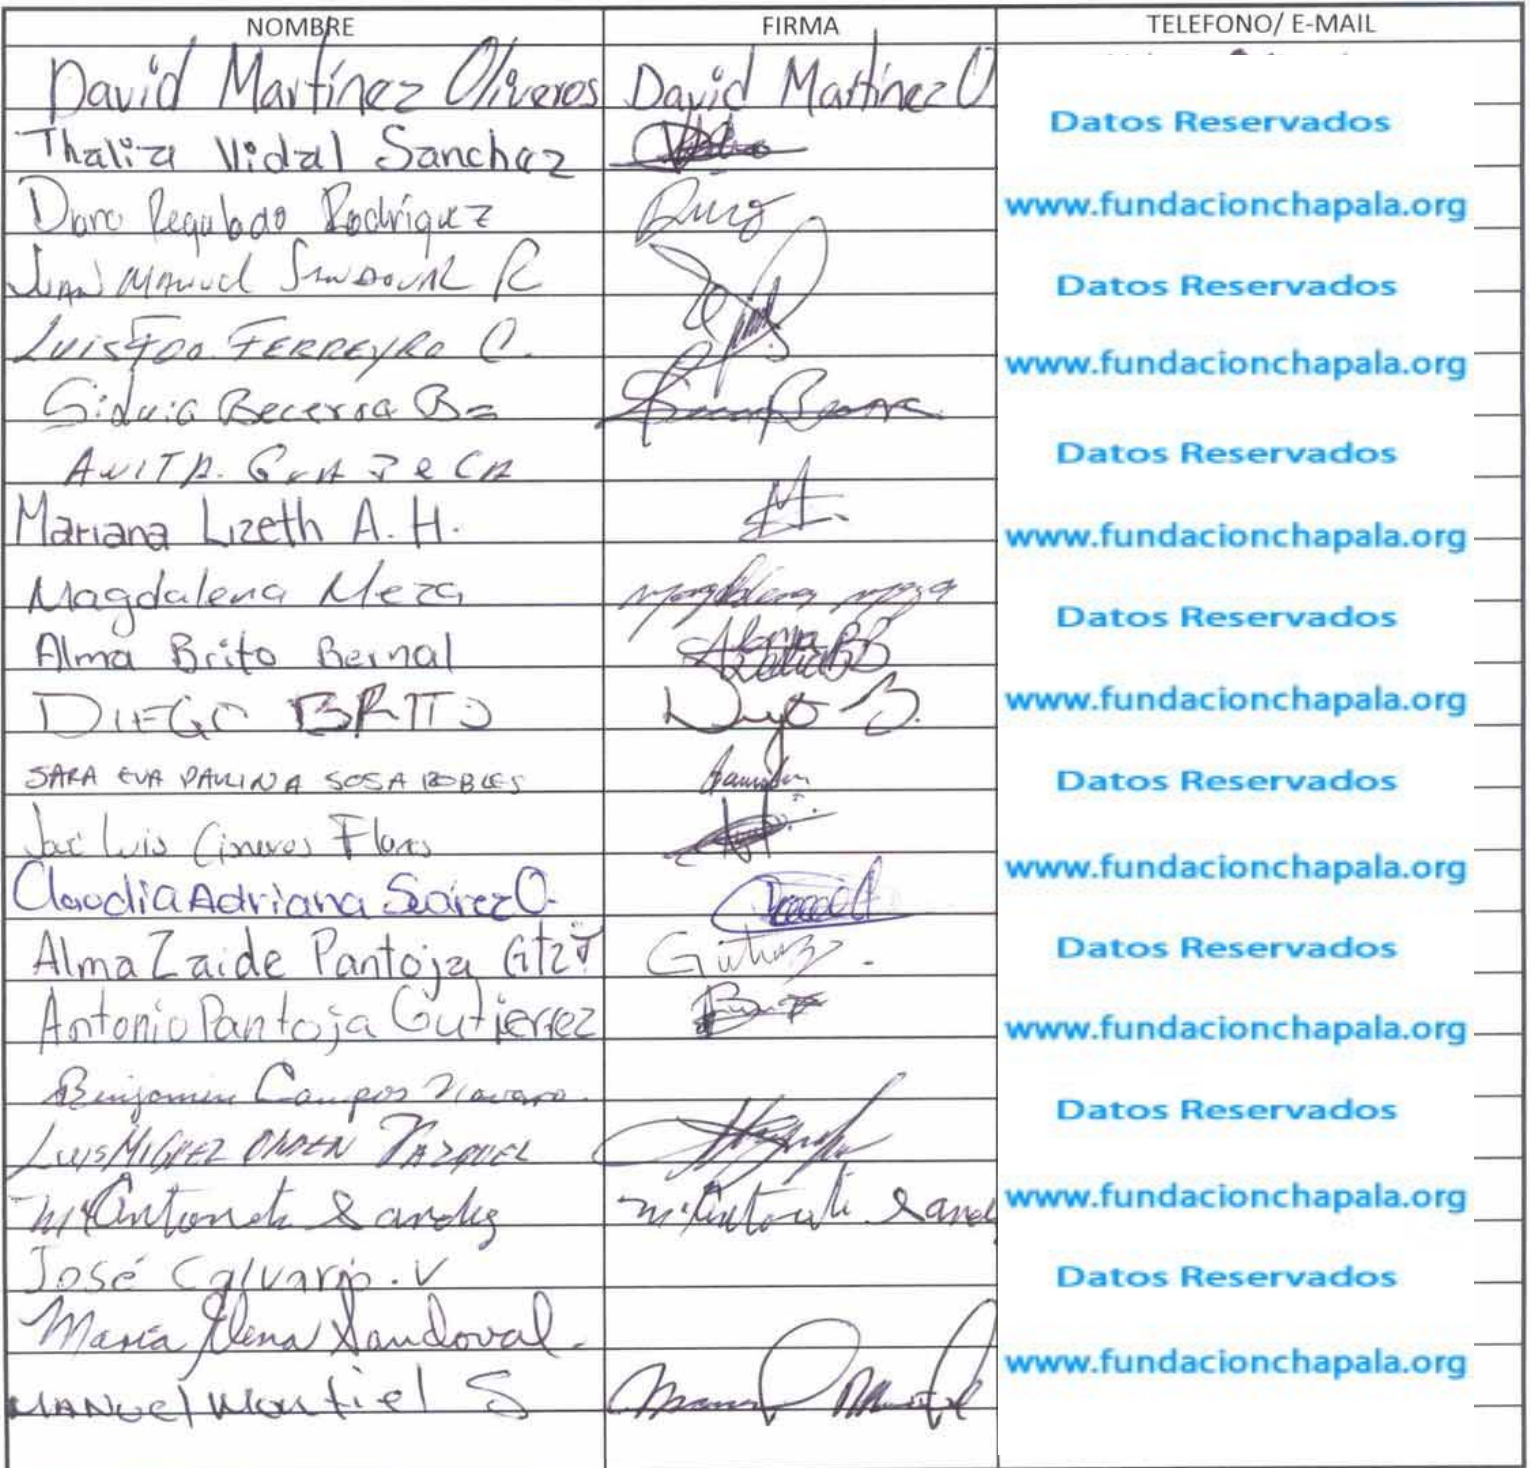 NOMBRE FIRMA TELEFONO/ E-MAIL
David Martínez Oliveros David Martínez O
Datos Reservados
Thalia Vidal Sanchez
Regulado Rodríguez Ruiz www.fundacionchapala.org
JUAN MANUEL SANDOVAL R
Datos Reservados
LUIS FDO. FERREYRO C.
www.fundacionchapala.org
Becerra
ANITA
Datos Reservados
Mariana Lizeth A. H. M.
www.fundacionchapala.org
Magdalena Meza magdalena meza
Datos Reservados
Alma Brito Bernal Alma BB
DIEGO BRITO Diego B.
www.fundacionchapala.org
SARA EVA PAULINA SOSA ROBLES
Datos Reservados
José Luis Cisneros Flores
www.fundacionchapala.org
Claudia Adriana Suárez O.
Alma Zaide Pantoja Gtz
Datos Reservados
Antonio Pantoja Gutierrez
www.fundacionchapala.org
Benjamin Campos Navarro.
Datos Reservados
LUIS MIGUEL VAZQUEZ
Mª Antonieta Mª Antonieta
www.fundacionchapala.org
José Calvario. V
Datos Reservados
María Elena Sandoval.
www.fundacionchapala.org
MANuel Montiel S Manuel Montiel